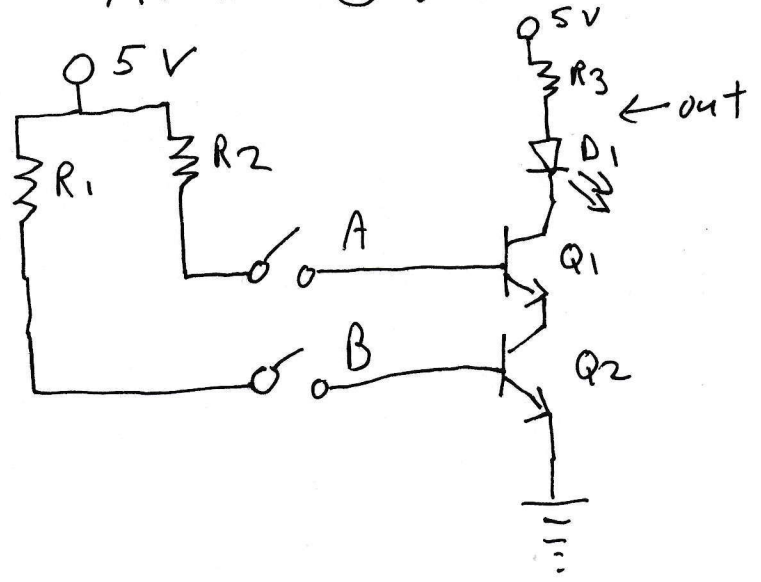 5V
5 V
R3
← out
R2
D1
R1
A
Q1
B
Q2